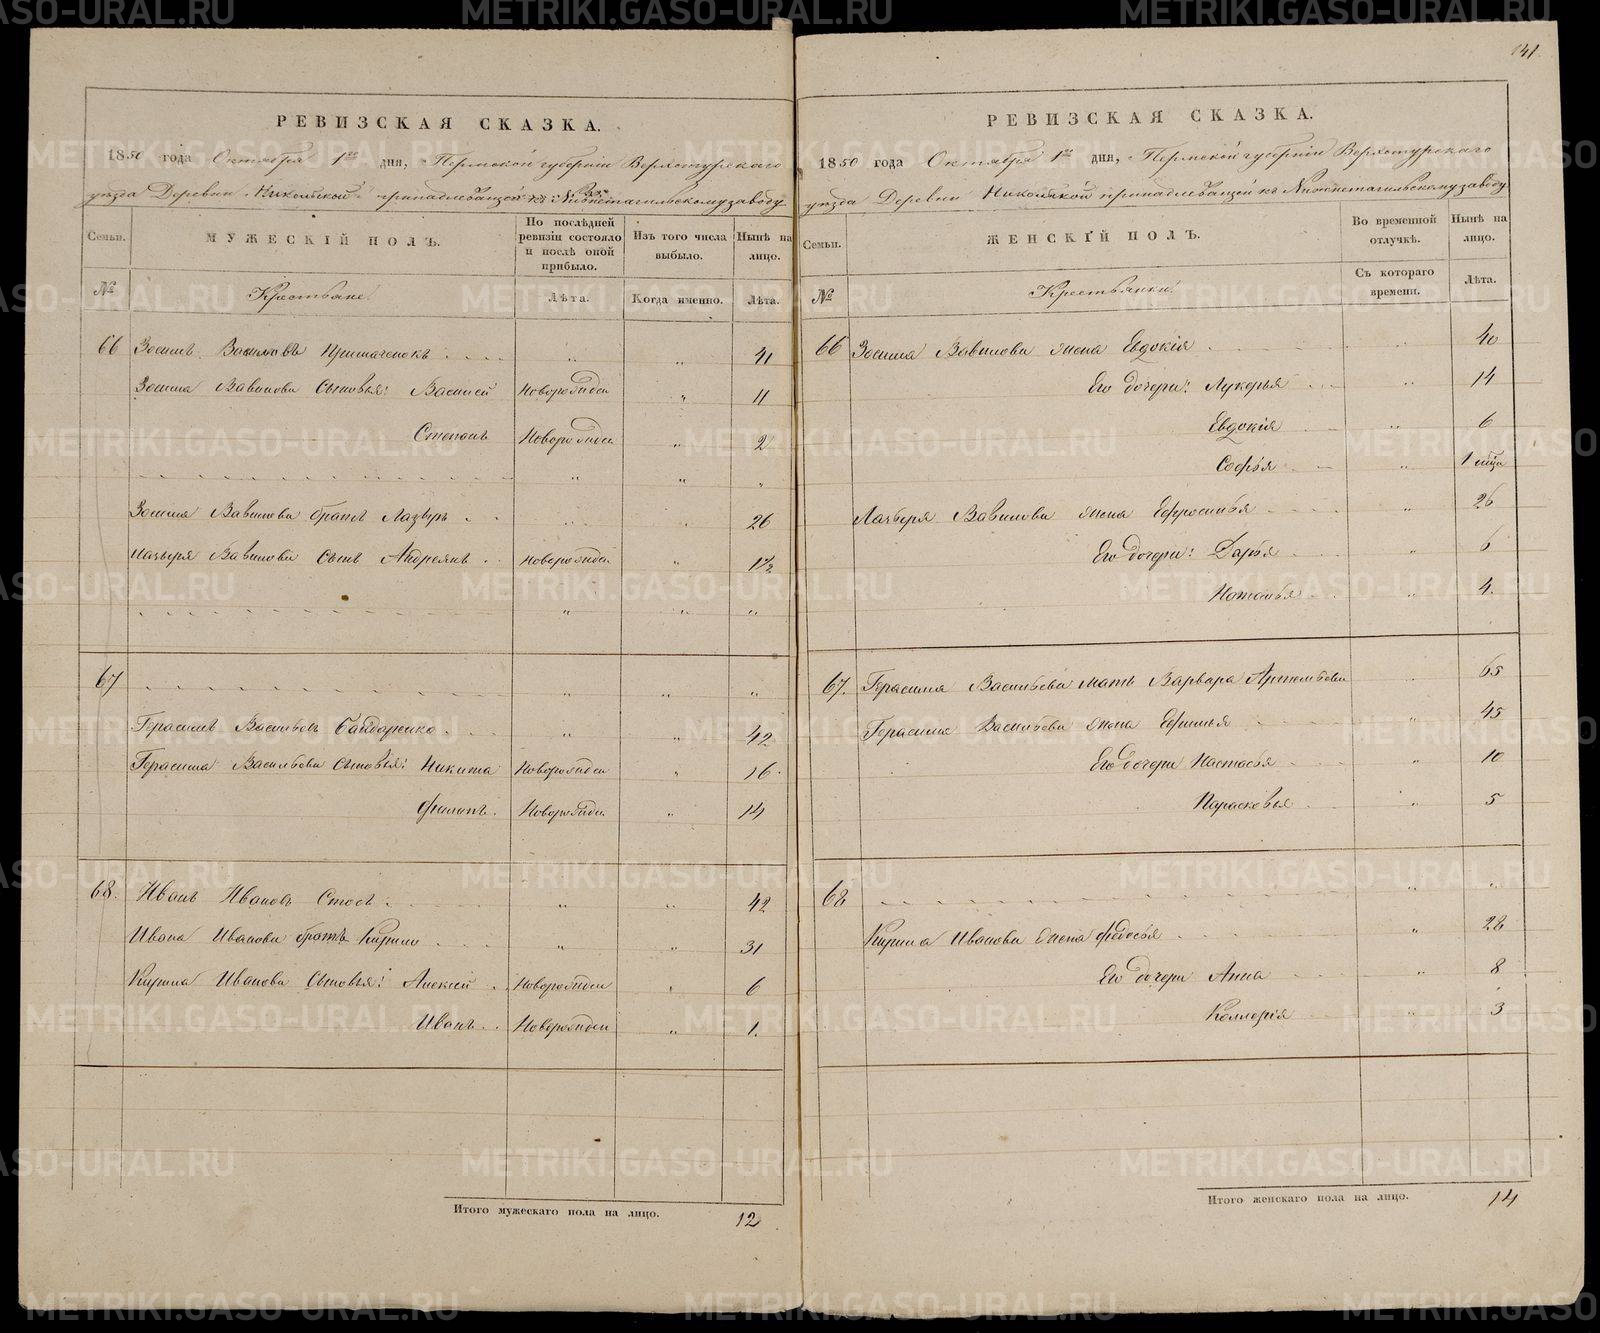 141.
РЕВИЗСКАЯ СКАЗКА.
1850 года Октября 1го дня, Пермской губернiи Верхотурскаго
уѣзда Деревни Никольской принадлежащей къ Нижнетагильскому заводу
Семьи.
МУЖЕСКІЙ ПОЛЪ.
По послѣдней ревизіи состояло и послѣ оной прибыло.
Изъ того числа выбыло.
Нынѣ на лицо.
№
Крестьяне:
Лѣта.
Когда именно.
Лѣта.
66 Зосимъ Вавиловъ . . . . " " 41
Зосима Вавилова Сыновья: Василей Новорожден " 11
Степанъ Новорожден " 2
" " "
Зосима Вавилова братъ Лазырь . . " 26
Лазыря Вавилова Сынъ Андреянъ . . Новорожден " 1½
" " "
67 " " "
Герасимъ Васильевъ . . " " 42
Герасима Васильева Сыновья: Никита Новорожден " 16.
Филипъ. Новорожден " 14
68. Иванъ Ивановъ . . " " 42
Ивана Иванова братъ Кирило . . . " " 31
Кирила Иванова Сыновья: Алексѣй . . Новорожден " 6
Иванъ . . Новорожден " 1.
Итого мужескаго пола на лицо. 12
РЕВИЗСКАЯ СКАЗКА.
1850 года Октября 1го дня, Пермской губернiи Верхотурскаго
уѣзда Деревни Никольской принадлежащей къ Нижнетагильскому заводу
Семьи.
ЖЕНСКІЙ ПОЛЪ.
Во временной отлучкѣ.
Нынѣ на лицо.
№
Крестьянки:
Съ котораго времени.
Лѣта.
66 Зосима Вавилова жена Евдокія . . . " 40
Его дочери: Лукерья . . . " 14
Евдокія . . " 6
Софья . . " 1 мѣся
Лазыря Вавилова жена Ефросинья . . . " 26
Его дочери: Дарья . . . " 6
Наталья . . " 4.
67. Герасима Васильева мать Варвара Артемьева " 65
Герасима Васильева жена Ефимья . . . " 45
Его дочери Настасья . . . " 10
Парасковья . . " 5
68 " "
Кирила Иванова жена Федосья . . . " 28
Его дочери Анна . . . " 8
Каллерія . . " 3
Итого женскаго пола на лицо. 14
METRIKI.GASO-URAL.RU